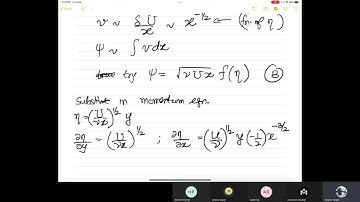 v ~ δU/x ~ x^{-1/2} ← (fn. of η)
ψ ~ ∫ v dx
try ψ = √(νUx) f(η) ③
Substitute in momentum eqn.
η = (U/νx)^{1/2} y
∂η/∂y = (U/νx)^{1/2} ; ∂η/∂x = (U/ν)^{1/2} y (-1/2) x^{-3/2}
HP AR